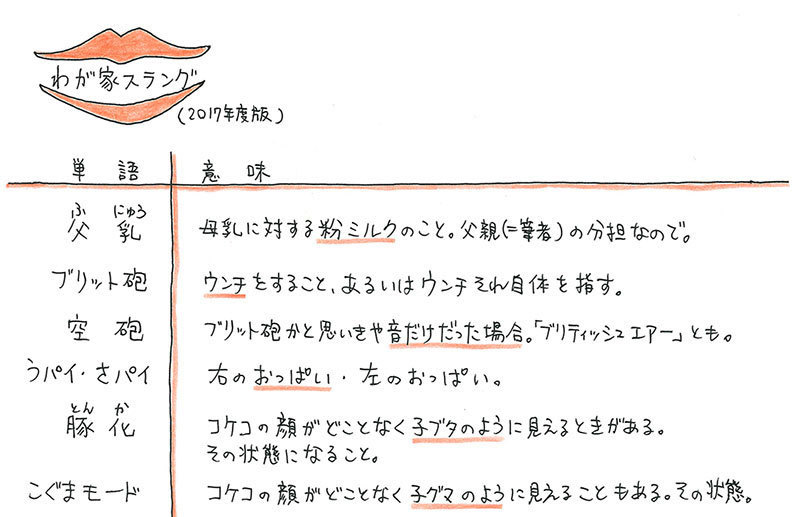 わが家スラング
(2017年度版)
単語 意味
ふにゅう
父乳 母乳に対する粉ミルクのこと。父親(=筆者)の分担なので。
ブリット砲 ウンチをすること、あるいはウンチそれ自体を指す。
空砲 ブリット砲かと思いきや音だけだった場合。「ブリティッシュエアー」とも。
うパイ・さパイ 右のおっぱい・左のおっぱい。
とんか
豚化 コケコの顔がどことなく子ブタのように見えるときがある。
その状態になること。
こぐまモード コケコの顔がどことなく子グマのように見えることもある。その状態。